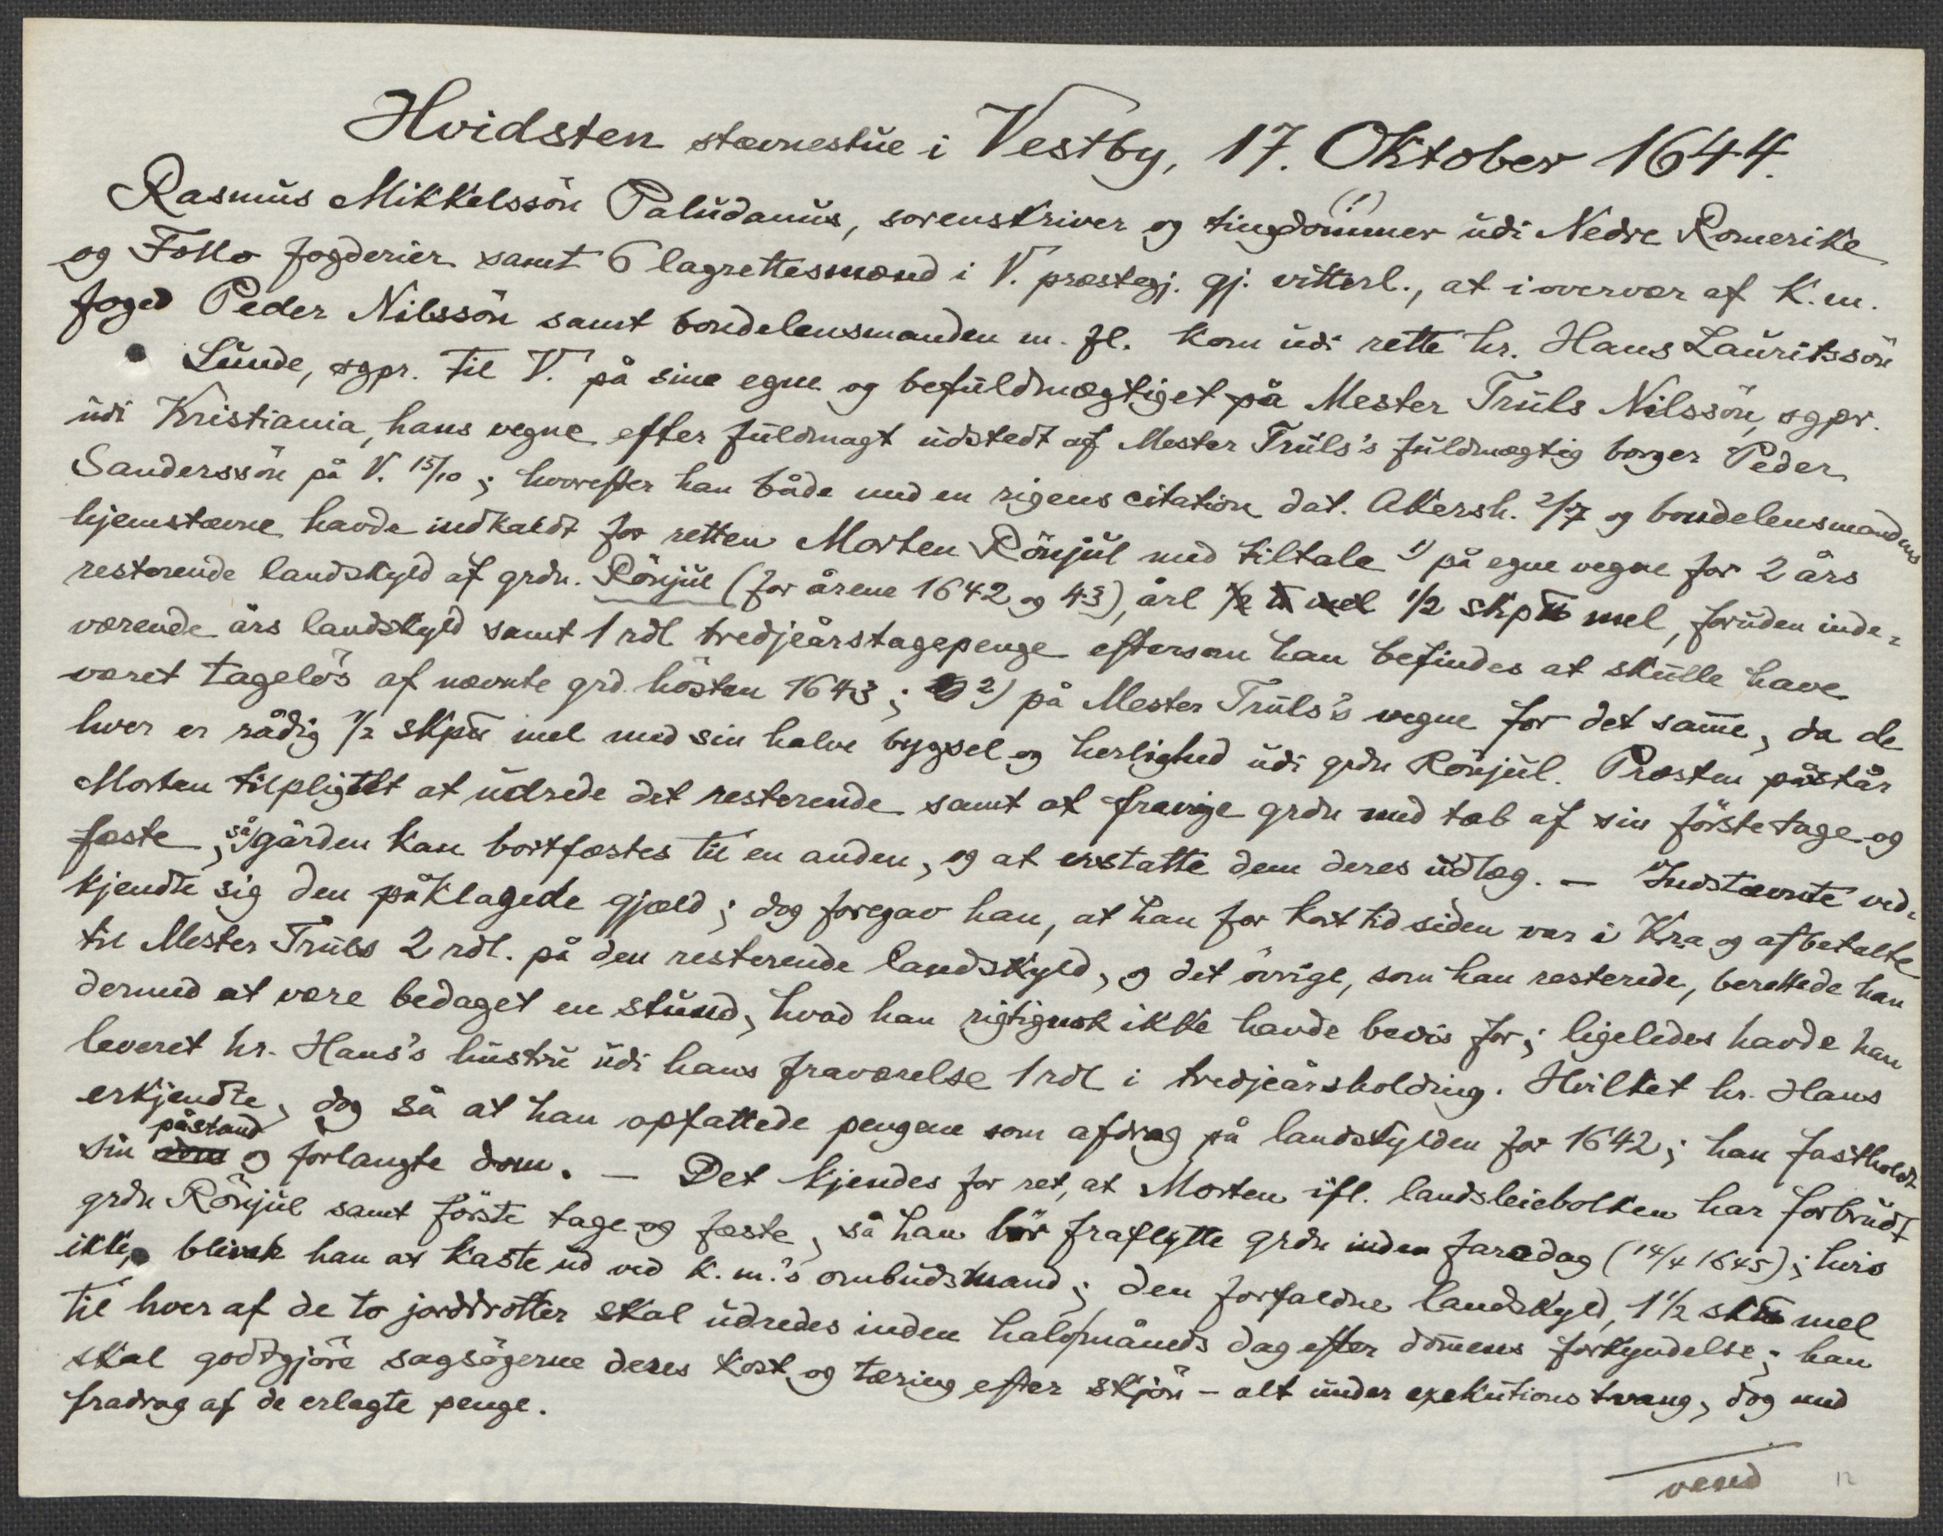 Hvidsten stævnestue i Vestby, 17. Oktober 1644.
Rasmus Mikkelssön Paludanus, sorenskriver og tingdommer (!) udi Nedre Romerike
og Follo fogderier samt 6 lagrettesmænd i V. præstegj. gj. vitterl., at i overvær af K. m.
foged Peder Nilssön samt bondelensmanden m. fl. kom udi rette hr. Hans Lauritssön
Lunde, sgpr. til V. på sine egne og befuldmægtiget på Mester Truls Nilssön, sgpr.
udi Kristiania, hans vegne efter fuldmagt udstedt af Mester Truls's fuldmægtig borger Peder
Sanderssön på V. 15/10; hvorefter han både med en rigens citation dat. Akersh. 2/7 og bondelensmandens
hjemstævne havde indkaldt for retten Morten Rönjul med tiltale 1) på egne vegne for 2 års
resterende landskyld af grdn. Rönjul (for årene 1642 og 43), årl 1/2 skp℔ mel, foruden inde-
værende års landskyld samt 1 rdl tredjeårstagepenge eftersom han befindes at skulle have
været tagelös af nævnte grd. hösten 1643; 2) på Mester Truls's vegne for det samme, da de
hver er rådig 1/2 skp℔ mel med sin halve bygsel og herlighed udi grdn Rönjul. Præsten påstår
Morten tilpligtet at udrede det resterende samt at fravige grdn med tab af sin förste tage og
fæste, så gården kan bortfæstes til en anden, og at erstatte dem deres udlæg. — Indstævnte ved-
kjendte sig den påklagede gjæld; dog foregav han, at han for kort tid siden var i Kra og afbetalte
til Mester Truls 2 rdl. på den resterende landskyld, og det övrige, som han resterede, berettede han
dermed at være bedaget en stund, hvad han rigtignok ikke havde bevis for; ligeledes havde han
leveret hr. Hans's hustru udi hans fraværelse 1 rdl i tredjeårsholding. Hvilket hr. Hans
erkjendte, dog så at han opfattede pengene som afdrag på landskylden for 1642; han fastholdt
sin påstand og forlangte dom. — Det kjendes for ret, at Morten ifl. landsleiebolken har forbrudt
grdn Rönjul samt förste tage og fæste, så han bör fraflytte grdn inden faredag (14/4 1645); hvis
ikke, bliver han at kaste ud ved K. m.'s ombudsmand; den forfaldne landskyld, 1 1/2 sk℔ mel
til hver af de to jorddrotter skal udredes inden halvmåneds dag efter dommens forkyndelse; han
skal godtgjöre sagsögerne deres kost og tæring efter skjön — alt under exekutions tvang, dog med
fradrag af de erlagte penge.
vend
12